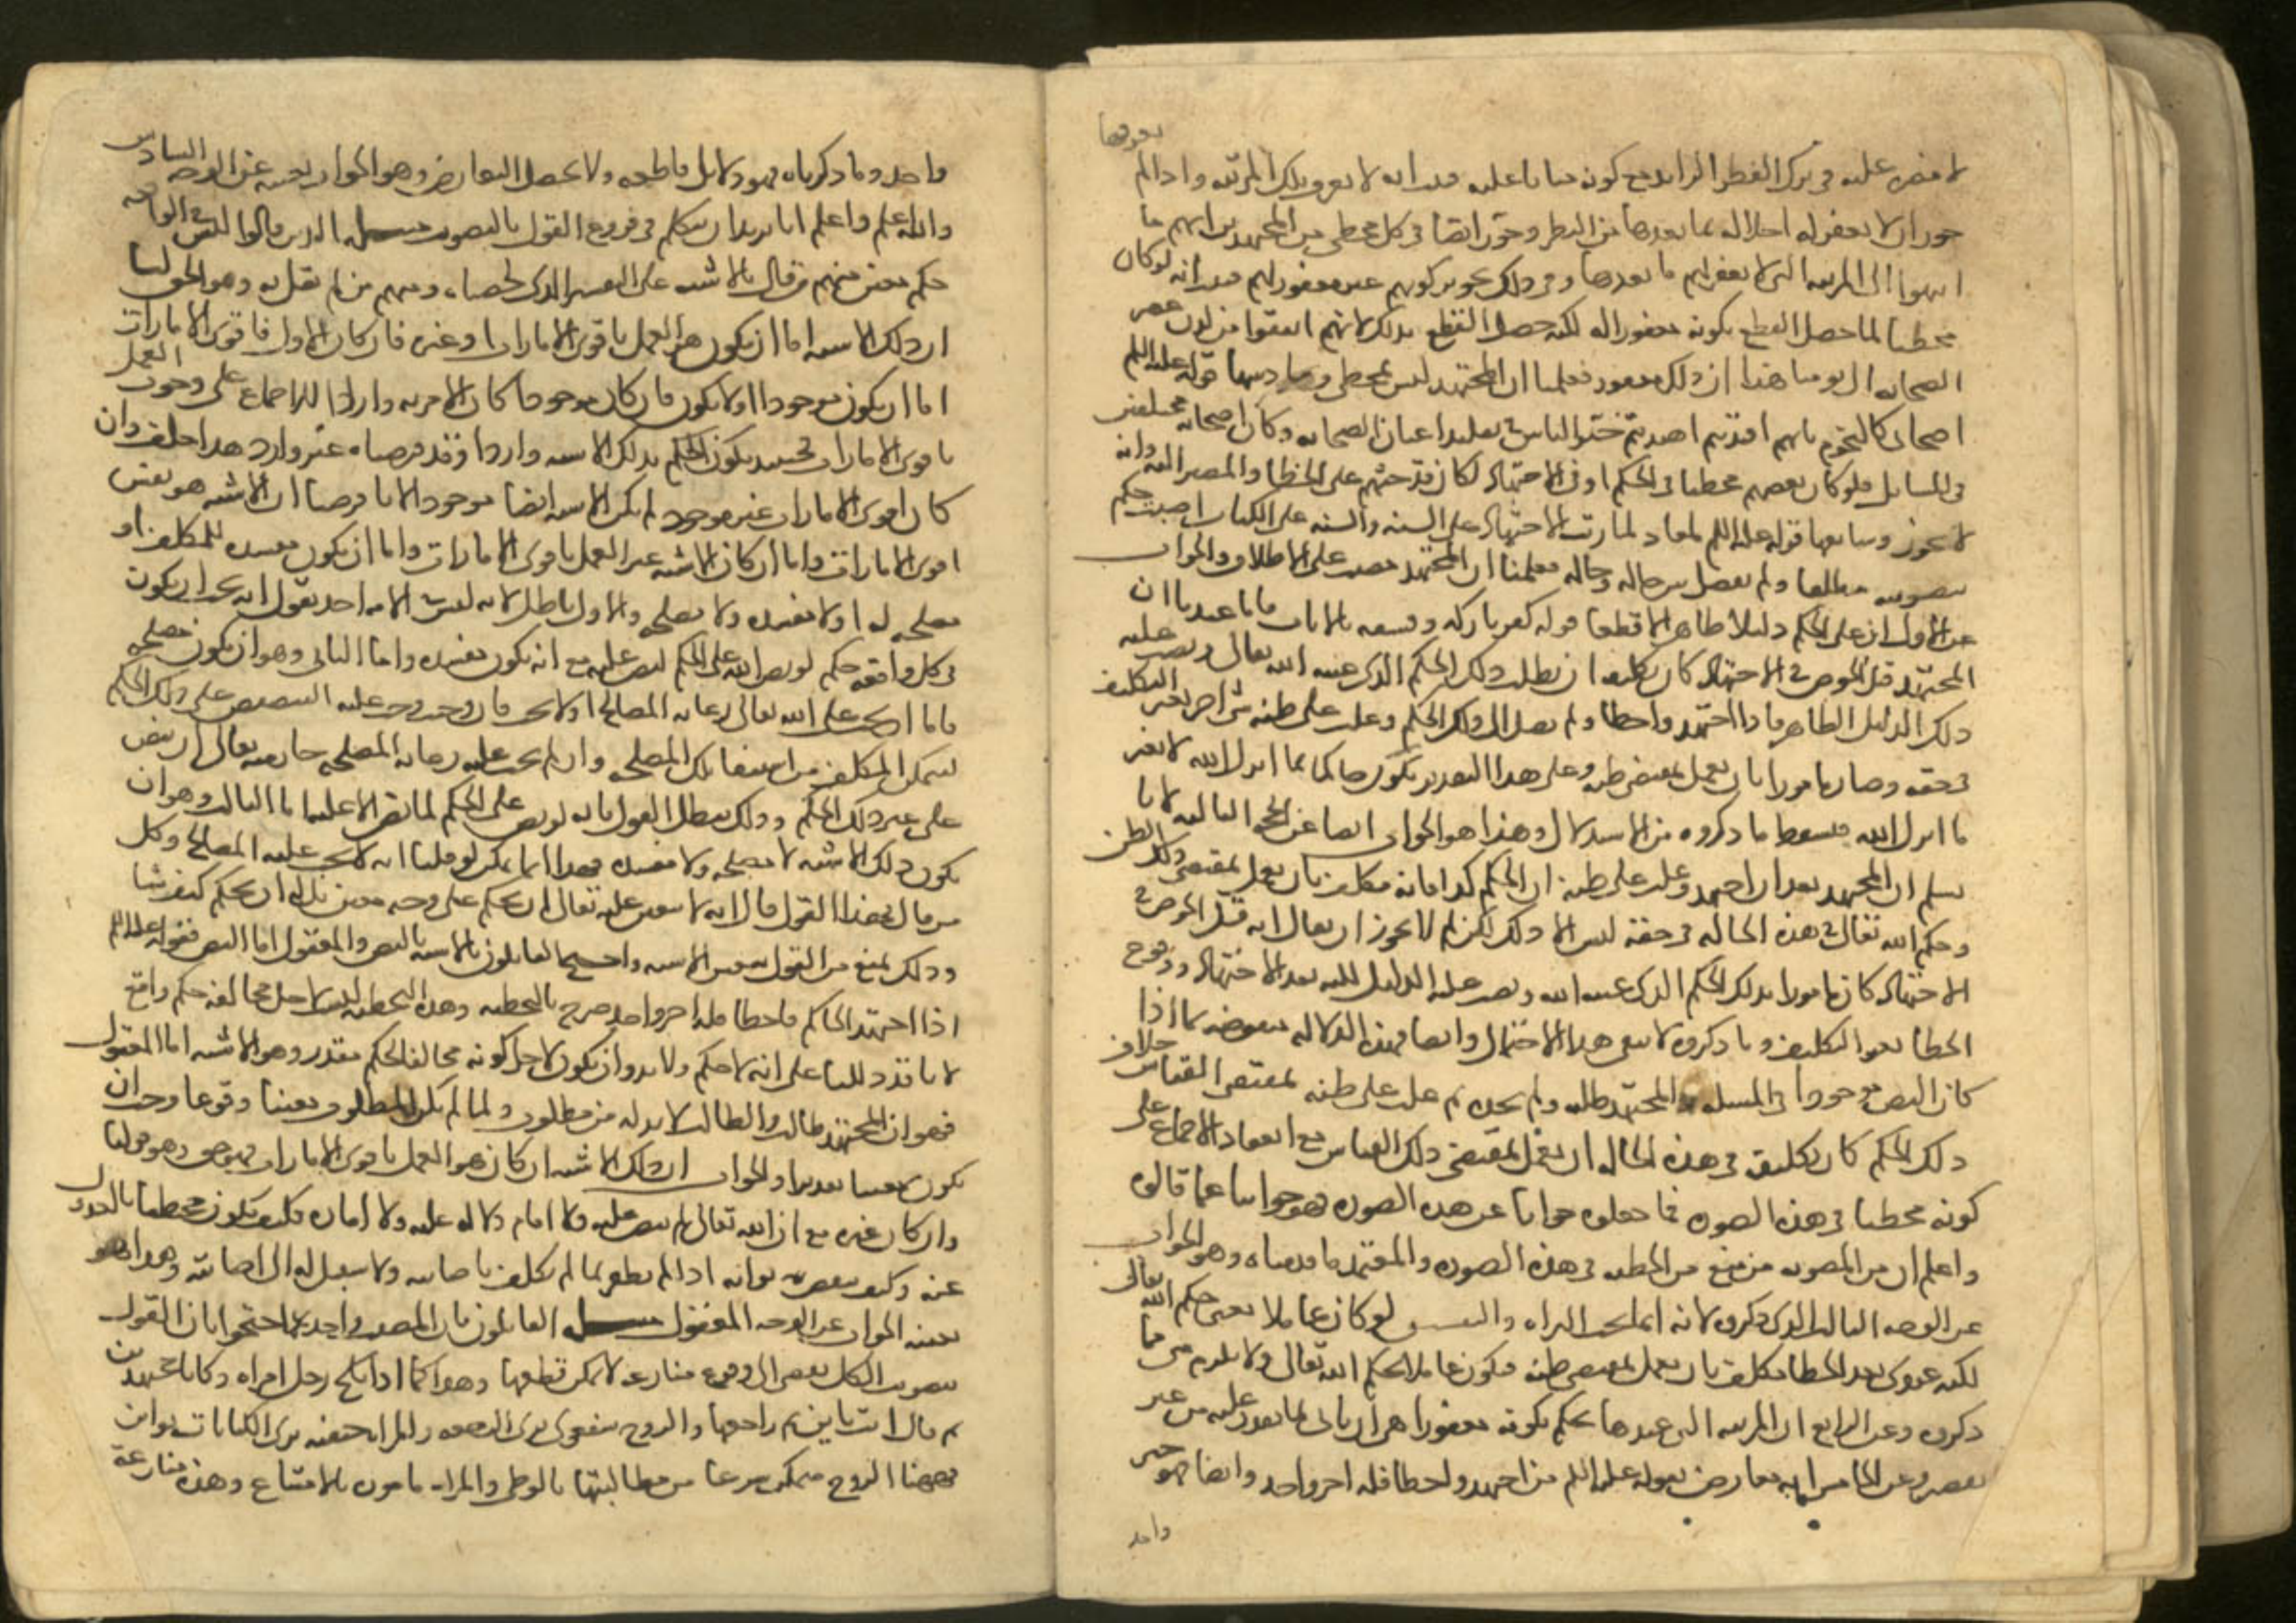 بعدها
لا عليه في ترك النظر الزايد مع كونه عليه انه لا يعرف تلك المرتبة واذا لم
جوزان لا يغفر له اخلاله بما بعدها من النظر وجوز ايضا في كل مخطى من المجتهدين انهم ما
انتهوا الى المرتبة التي لا يغفر لهم ما بعدها وفي ذلك تجويز كونهم غير مغفور لهم انه لو كان
مخطيا لما حصل القطع بكونه مغفورا له لكنه حصل القطع بذلك لانهم اتفقوا من لدن عصر
الصحابه الى يومنا هذا ان ذلك مغفور فعلمنا ان المجتهد ليس بمخطى وسادسها قوله عليه السلم
اصحابى كالنجوم بايهم اقتديتم اهتديتم خير الناس في تقليد اعيان الصحابه وكان اصحابه مختلفين
في المسايل فلو كان بعضهم مخطيا في الحكم او في الاجتهاد لكان قد حثهم على الخطا والمصير اليه وانه
لا يجوز وسابعها قوله عليه السلم لمعاذ لما رتب الاجتهاد على السنه والسنه على الكتاب اصبت حكم
بتصويبه مطلقا ولم يفصل بين حاله وحاله فعلمنا ان المجتهد مصيب على الاطلاق والجواب
عن الاول ان على الحكم دليلا ظاهرا لا قطعا قوله كفر تاركه وفسقه بالايات قلنا عندنا ان
المجتهد قبل الخوض في الاجتهاد كان تكليفه ان يطلب ذلك الحكم الذي عينه الله تعالى ونصب عليه
ذلك الدليل الظاهر فاذا اجتهد واخطا ولم يصل الى ذلك الحكم وغلب على ظنه شى اخر تغير التكليف
في حقه وصار مامورا بان يعمل بمقتضى ظنه وعلى هذا التقدير يكون حاكما بما انزل الله لا بغير
ما انزل الله فسقط ما ذكروه من الاستدلال وهذا هو الجواب ايضا عن الحجه الثالثه لانا
نسلم ان المجتهد بعد ان اجتهد وغلب على ظنه ان الحكم كذا فانه مكلف بان يعمل بمقتضى ذلك الظن
وحكم الله تعالى في هذه الحاله في حقه ليس الا ذلك لكن لم لا يجوز ان يقال انه قبل الخوض في
الاجتهاد كان مامورا بذلك الحكم الذي عينه الله ونصب عليه الدليل لكنه بعد الاجتهاد ووقوع
الخطا تغير التكليف وما ذكروه لا ينفي هذا الاحتمال وايضا فهذه الدلاله منقوضه بما اذا
كان النص موجودا في المسله والمجتهد طلبه ولم يجده ثم غلب على ظنه بمقتضى القياس خلاف
ذلك الحكم كان تكليفه في هذه الحاله ان يعمل بمقتضى ذلك القياس مع انعقاد الاجماع على
كونه مخطيا في هذه الصوره فما جعلوه جوابا عن هذه الصوره فهو جوابنا عما قالوه
واعلم ان من المصوبه من منع من التخطيه في هذه الصوره والمعتمد ما قدمناه وهو الجواب
عن الوجه الثالث الذي ذكروه لانه لو كان عاملا بغير حكم الله تعالى
لكنه بعد الخطا مكلف بان يعمل بمقتضى ظنه فيكون عاملا بحكم الله تعالى ولا يلزم شى مما
ذكروه وعن الرابع ان المرتبه التي عندها يحكم بكونه مغفورا هي ان ياتى بما يقدر عليه من غير
تقصير وعن الخامس انه معارض بقوله عليه السلم من اجتهد واخطا فله اجر واحد وايضا فهو خبر
واحد
واحد وما ذكرناه فهو دلايل قاطعه ولا يحصل التعارض وهو الجواب بعينه عن الوجه السادس
والله اعلم واعلم انا نريد ان نتكلم في فروع القول بالتصويب مسله الذين قالوا ليس في الواقعه
حكم معين منهم من قال بالاشبه على التفسير الذي لخصناه ومنهم من لم يقل به وهو الحق لنا
ان ذلك الاشبه اما ان يكون هو العمل باقوى الامارات او غيره فان كان الاول فاقوى الامارات
اما ان يكون موجودا او لا يكون فان كان موجودا كان الامر به واردا للاجماع على وجوب العمل
باقوى الامارات فحينئذ يكون الحكم بذلك الاشبه واردا وقد فرضناه غير وارد هذا خلف وان
كان اقوى الامارات غير موجود لم يكن الاشبه ايضا موجودا لانا فرضنا ان الاشبه هو نفس
اقوى الامارات واما ان كان الاشبه غير العمل باقوى الامارات فاما ان يكون مفسده للمكلف او
مصلحه له او لا مفسده ولا مصلحه والاول باطل لانه ليس في الامه احد يقول انه يجب ان يكون
في كل واقعه حكم لو نص الله على الحكم لنص عليه مع انه يكون مفسده واما الثانى وهو ان يكون مصلحه
فاما ان يجب على الله تعالى رعايه المصالح او لا يجب فان وجب وجب عليه التنصيص على ذلك الحكم
ليتمكن المكلف من استيفا تلك المصلحه وان لم يجب عليه رعايه المصلحه جاز منه تعالى ان ينص
على غير ذلك الحكم وذلك يبطل القول بانه لو نص على الحكم لما نص الا عليه اما الثالث وهو ان
يكون ذلك الاشبه لا مصلحه ولا مفسده فهذا انما يمكن لو قلنا انه لا يجب عليه المصالح وكل
من قال بهذا القول قال انه لا يتعين عليه تعالى ان يحكم على وجه معين بل له ان يحكم كيف شا
وذلك يمنع من القول بتعين الاشبه واحتج القايلون بالاشبه بالنص والمعقول اما النص فقوله عليه السلم
اذا اجتهد الحاكم فاخطا فله اجر واحد صرح بالتخطيه وهذه التخطيه ليست لاجل مخالفه حكم واقع
لانا قد دللنا على انه لا حكم ولا بد وان يكون لاجل كونه مخالفا لحكم مقدر وهو الاشبه اما المعقول
فهو ان المجتهد طالب والطالب لا بد له من مطلوب ولما لم يكن المطلوب معينا وقوعا وجب ان
يكون معينا تقديرا والجواب ان ذلك الاشبه ان كان هو العمل باقوى الامارات فهو حق وهو قولنا
وان كان غيره مع ان الله تعالى لم ينص عليه ولا اقام دلاله عليه ولا اماره فكيف يكون مخطيا بالعدول
عنه وكيف ينقص ثوابه اذا لم يظفر بما لم يكلف باصابته ولا سبيل له الى اصابته وهذا هو
بعينه الجواب عن الوجه المعقول مسله القايلون بان المصيب واحد احتجوا بان القول
بتصويب الكل يفضى الى وقوع منازعه لا يمكن قطعها وهو كما اذا نكح رجل امراه وكانا مجتهدين
ثم قال انت باين ثم راجعها والزوج شفعوى يرى الرجعه والمراه حنفيه ترى الكنايات بواين
فههنا الزوج متمكن شرعا من مطالبتها بالوطى والمراه مامورة بالامتناع وهذه منازعة